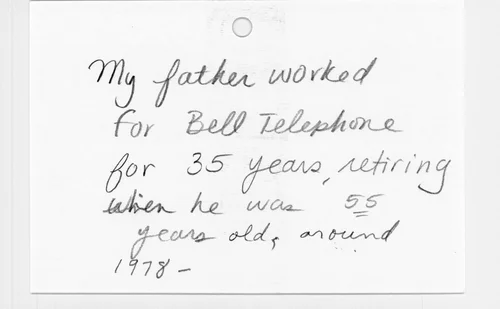 My father worked
for Bell Telephone
for 35 years, retiring
when he was 55
years old, around
1978 -